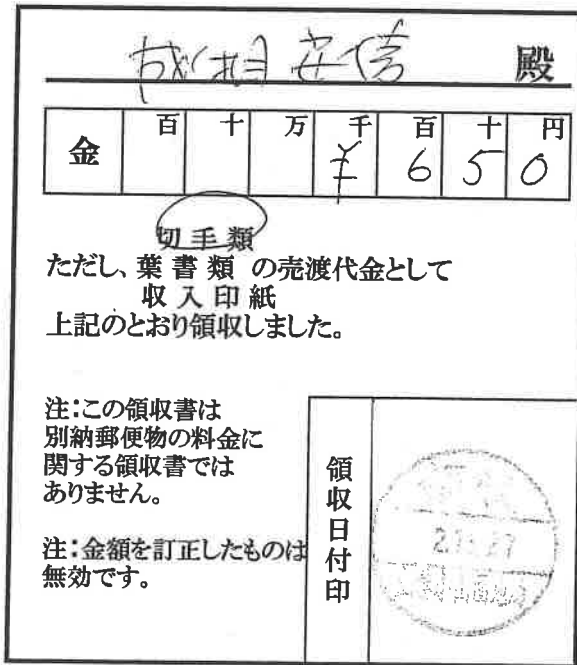 成相安信 殿
金 百 十 万 千 百 十 円
¥ 6 5 0
切手類
ただし、葉書類 の売渡代金として
収入印紙
上記のとおり領収しました。
注：この領収書は
別納郵便物の料金に
関する領収書では
ありません。
注：金額を訂正したものは
無効です。
領収日付印